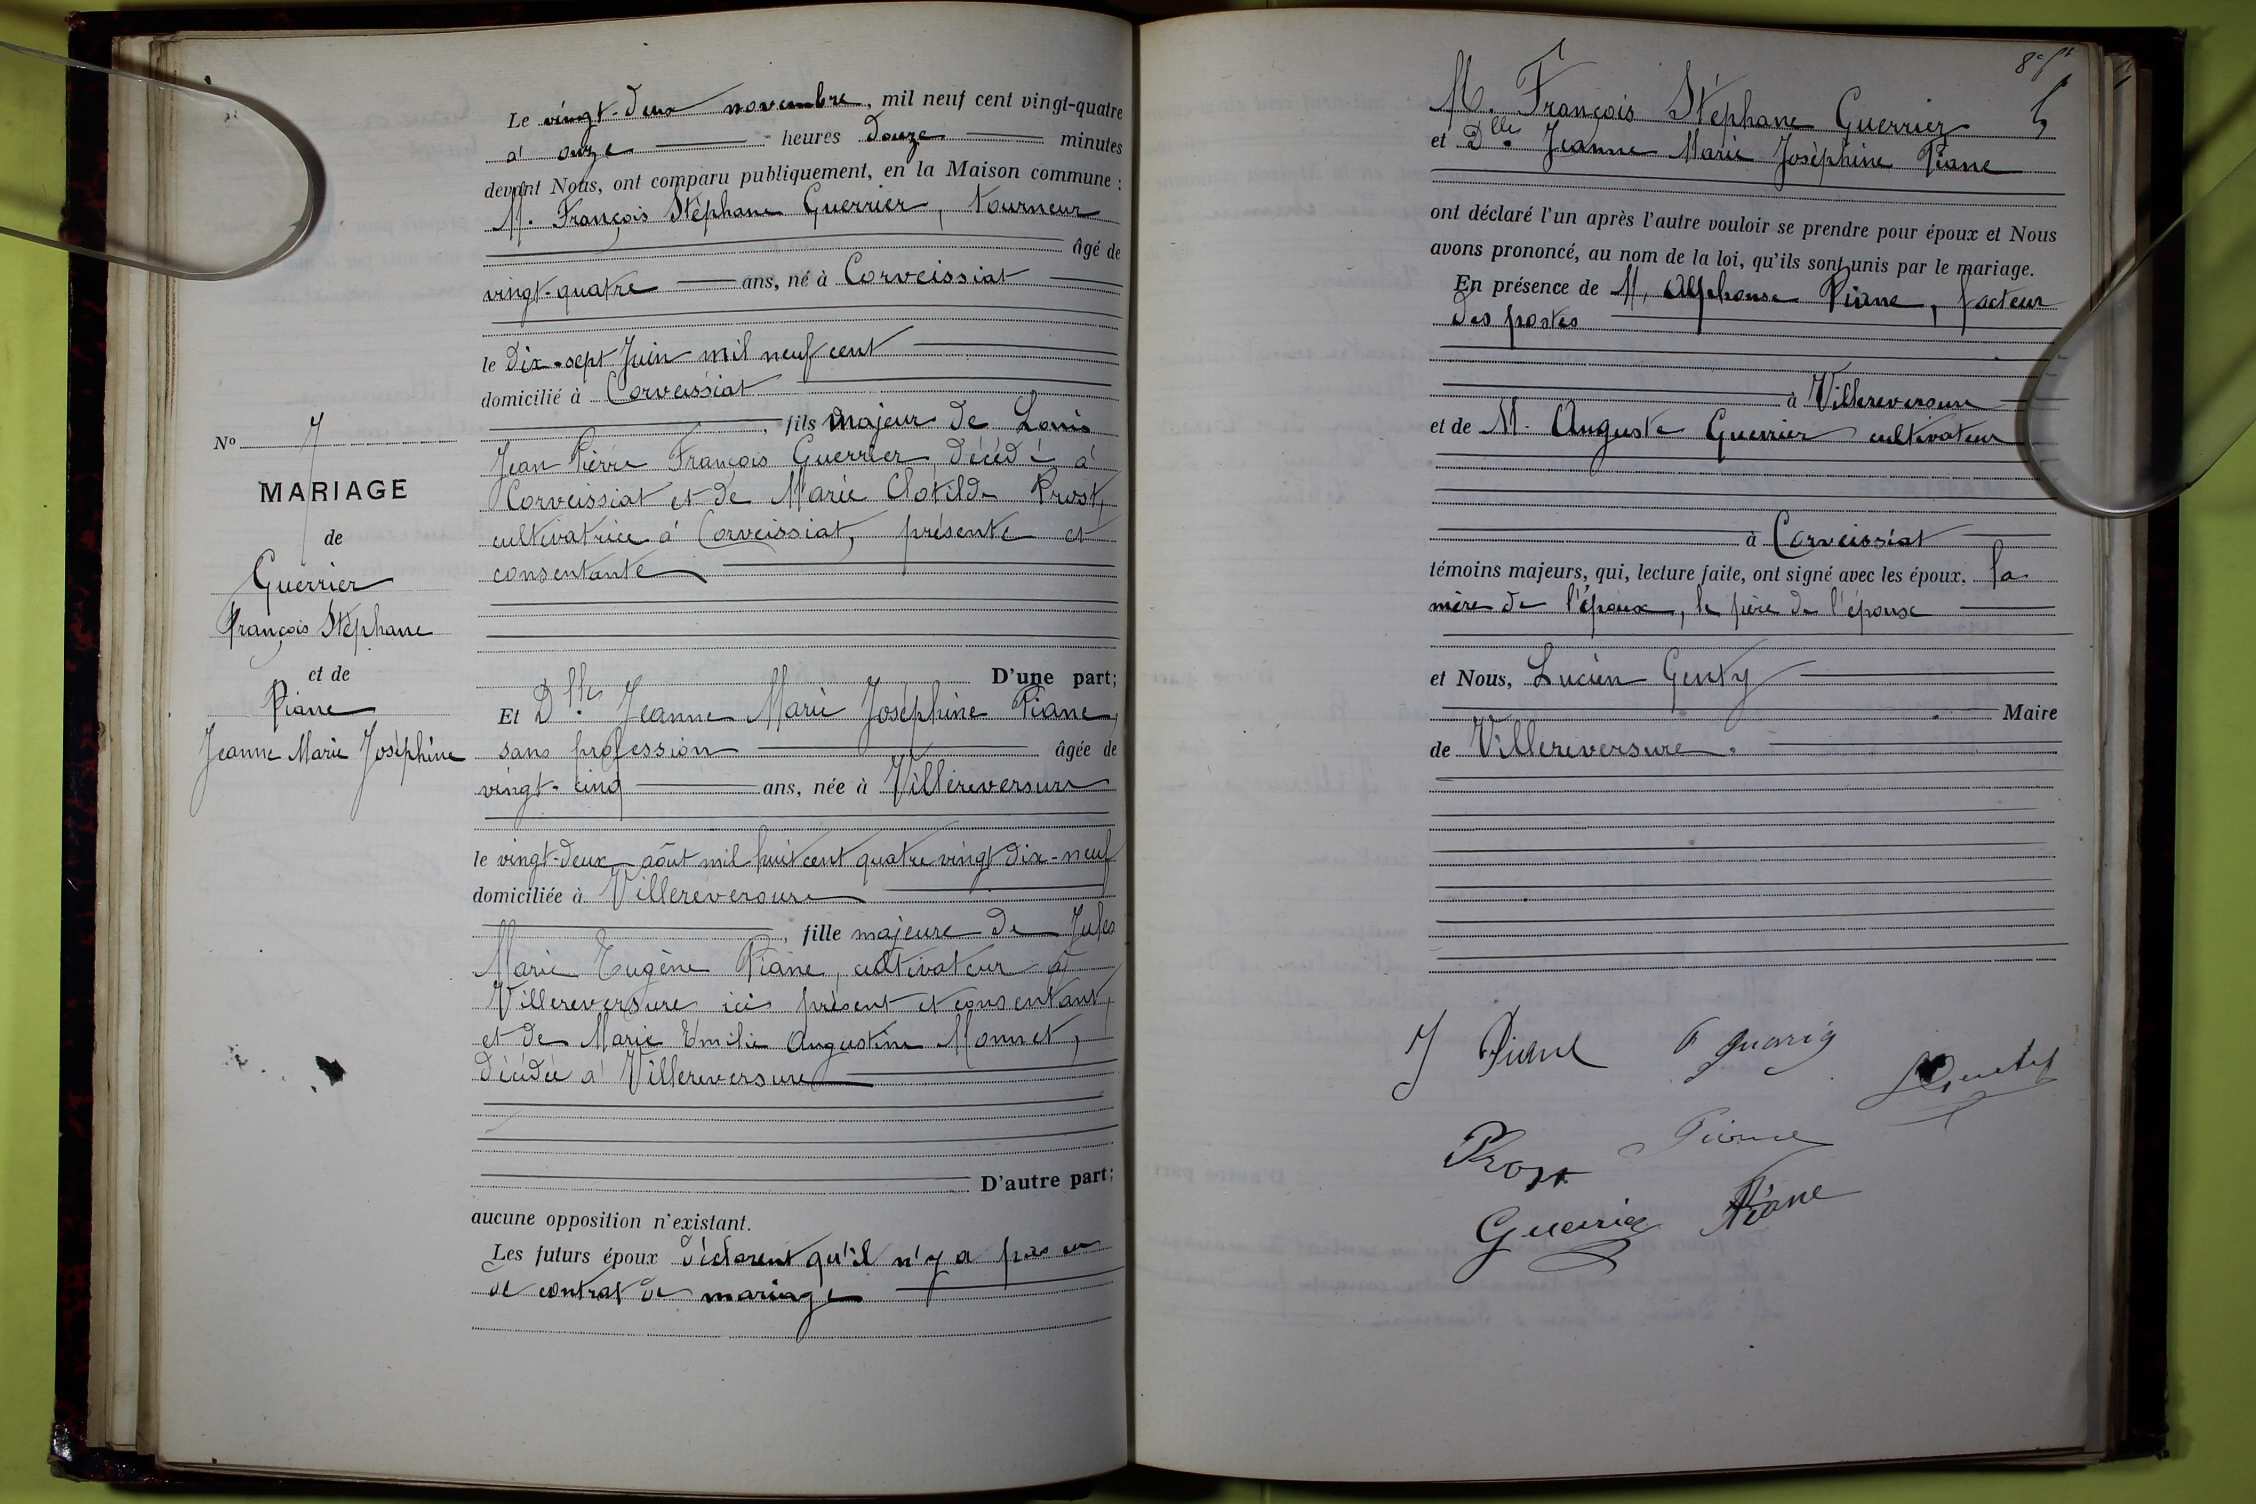 Le vingt-deux novembre, mil neuf cent vingt-quatre
à onze heures douze minutes
devant Nous, ont comparu publiquement, en la Maison commune :
M. François Stéphane Guerrier, tourneur
âgé de
vingt-quatre ans, né à Corveissiat
le dix-sept Juin mil neuf cent
domicilié à Corveissiat
, fils majeur de Louis
Jean Pierre François Guerrier, décédé à
Corveissiat et de Marie Clotilde Prost,
cultivatrice à Corveissiat, présente et
consentante
D'une part;
Et Dlle Jeanne Marie Joséphine Piane,
sans profession âgée de
vingt-cinq ans, née à Villereversure
le vingt-deux août mil huit cent quatre vingt dix-neuf
domiciliée à Villereversure
, fille majeure de Jules
Marie Eugène Piane, cultivateur à
Villereversure ici présent et consentant,
et de Marie Emilie Augustine Monnet,
décédée à Villereversure
D'autre part;
aucune opposition n'existant.
Les futurs époux déclarent qu'il n'y a pas eu
de contrat de mariage
No 7
MARIAGE
de
Guerrier
François Stéphane
et de
Piane
Jeanne Marie Joséphine
M. François Stéphane Guerrier
et Dlle Jeanne Marie Joséphine Piane
ont déclaré l'un après l'autre vouloir se prendre pour époux et Nous
avons prononcé, au nom de la loi, qu'ils sont unis par le mariage.
En présence de M. Alphonse Piane, facteur
des postes
à Villereversure
et de M. Auguste Guerrier cultivateur
à Corveissiat
témoins majeurs, qui, lecture faite, ont signé avec les époux, la
mère de l'époux, le père de l'épouse
et Nous, Lucien Genty
Maire
de Villereversure.
J Piane
Prost
Piane
Piane